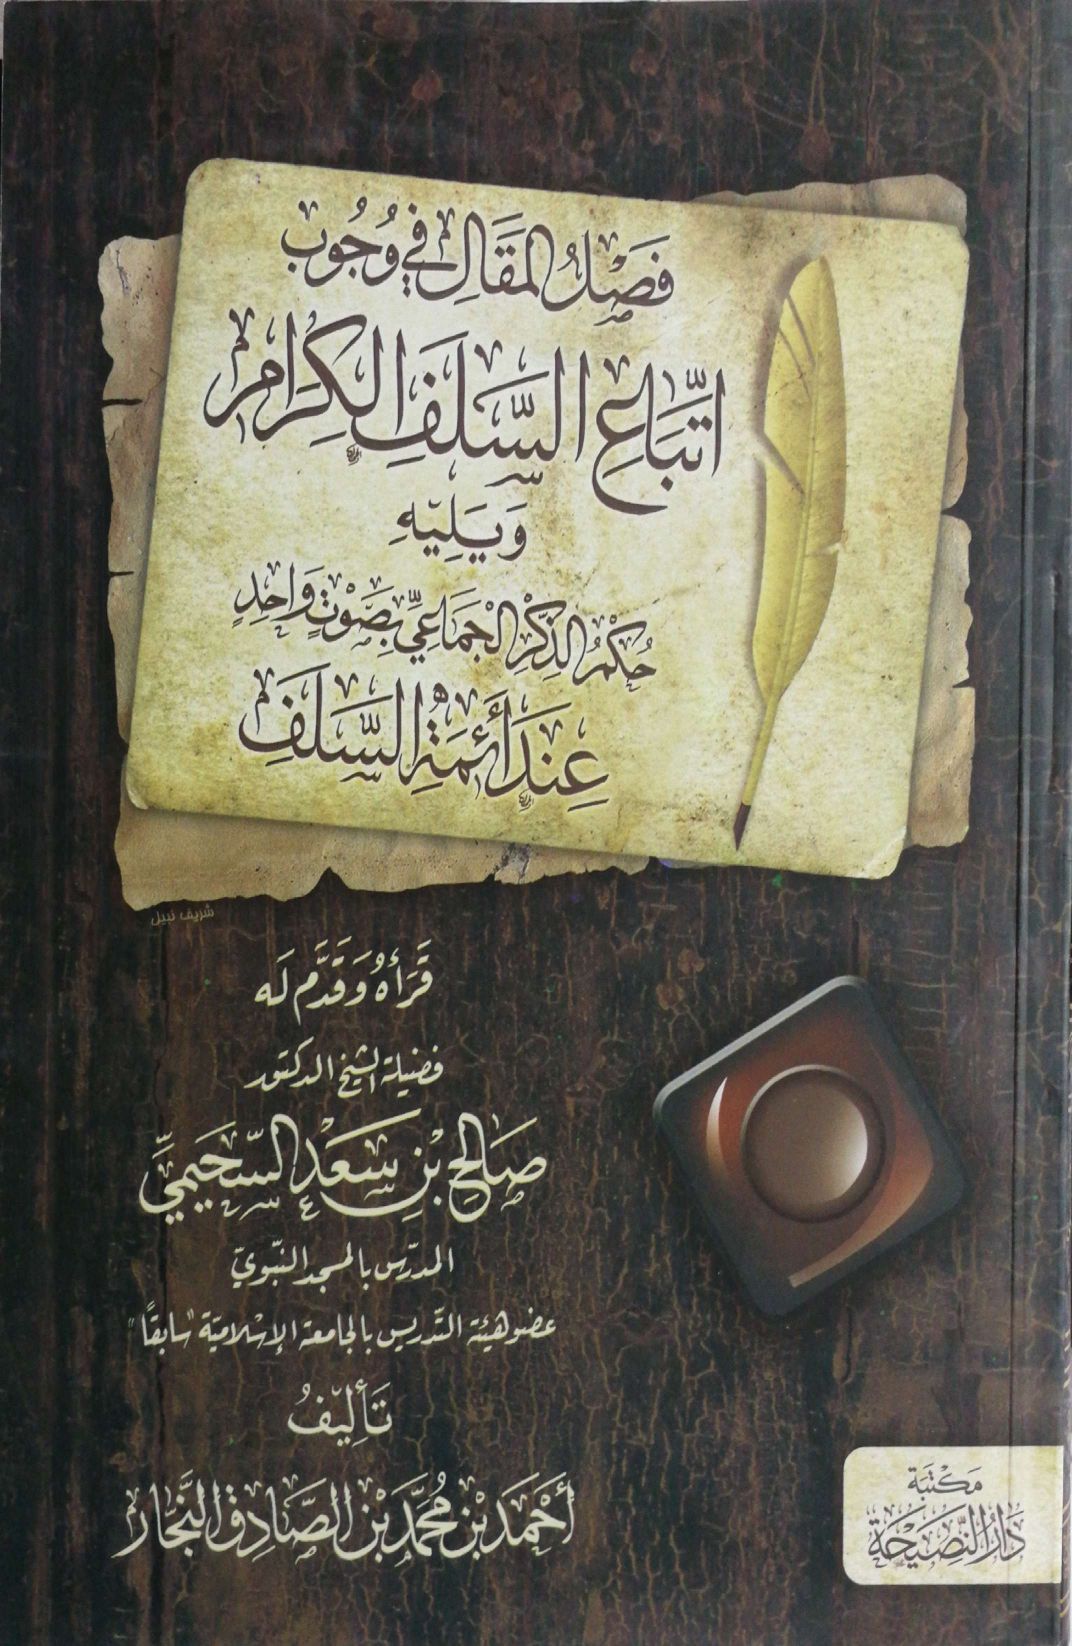 فَصْلُ المَقَالِ فِي وُجُوبِ
اتِّبَاعِ السَّلَفِ الكِرَامِ
وَيَلِيْهِ
حُكْمُ الذِّكْرِ الْجَمَاعِيِّ بِصَوْتٍ وَاحِدٍ
عِنْدَ أَئِمَّةِ السَّلَفِ
شريف نبيل
قَرَأَهُ وَقَدَّمَ لَه
فضيلة الشيخ الدكتور
صَالِح بْنِ سَعْدٍ السّحَيْمِيِّ
المدرّس بالمسجد النّبويّ
عضو هيئة التّدريس بالجامعة الإسلاميّة "سابقاً"
تَأْلِيْفُ
أَحْمَد بْن مُحَمَّد بْن الصَّادِق النَّجَّار
مَكْتَبَة
دَارُ النَّصِيْحَة